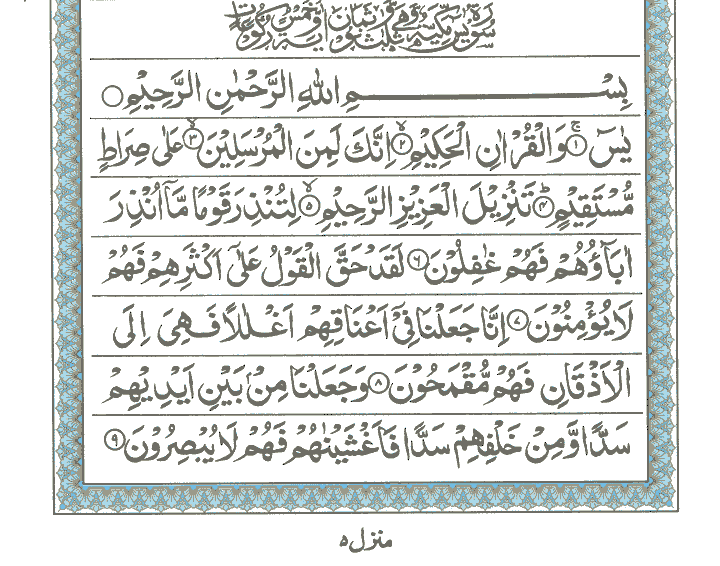 سُورَةُ يٰسٓ مَكِّيَّةٌ وَّهِيَ ثَلٰثٌ وَّثَمَانُوْنَ اٰيَةً وَّخَمْسُ رُكُوْعَاتٍ
بِسْمِ اللهِ الرَّحْمٰنِ الرَّحِيْمِ
يٰسٓ ۚ‏﴿۱﴾ وَالْقُرْاٰنِ الْحَكِيْمِ ۙ‏﴿۲﴾ اِنَّكَ لَمِنَ الْمُرْسَلِيْنَ ۙ‏﴿۳﴾ عَلٰى صِرَاطٍ
مُّسْتَقِيْمٍ ؕ‏﴿۴﴾ تَنْزِيْلَ الْعَزِيْزِ الرَّحِيْمِ ۙ‏﴿۵﴾ لِتُنْذِرَ قَوْمًا مَّاۤ اُنْذِرَ
اٰبَآؤُهُمْ فَهُمْ غٰفِلُوْنَ ﴿۶﴾ لَقَدْ حَقَّ الْقَوْلُ عَلٰٓى اَكْثَرِهِمْ فَهُمْ
لَا يُؤْمِنُوْنَ ﴿۷﴾ اِنَّا جَعَلْنَا فِيْۤ اَعْنَاقِهِمْ اَغْلٰلًا فَهِىَ اِلَى
الْاَذْقَانِ فَهُمْ مُّقْمَحُوْنَ ﴿۸﴾ وَجَعَلْنَا مِنْۢ بَيْنِ اَيْدِيْهِمْ
سَدًّا وَّمِنْ خَلْفِهِمْ سَدًّا فَاَغْشَيْنٰهُمْ فَهُمْ لَا يُبْصِرُوْنَ ﴿۹﴾
منزل ۵